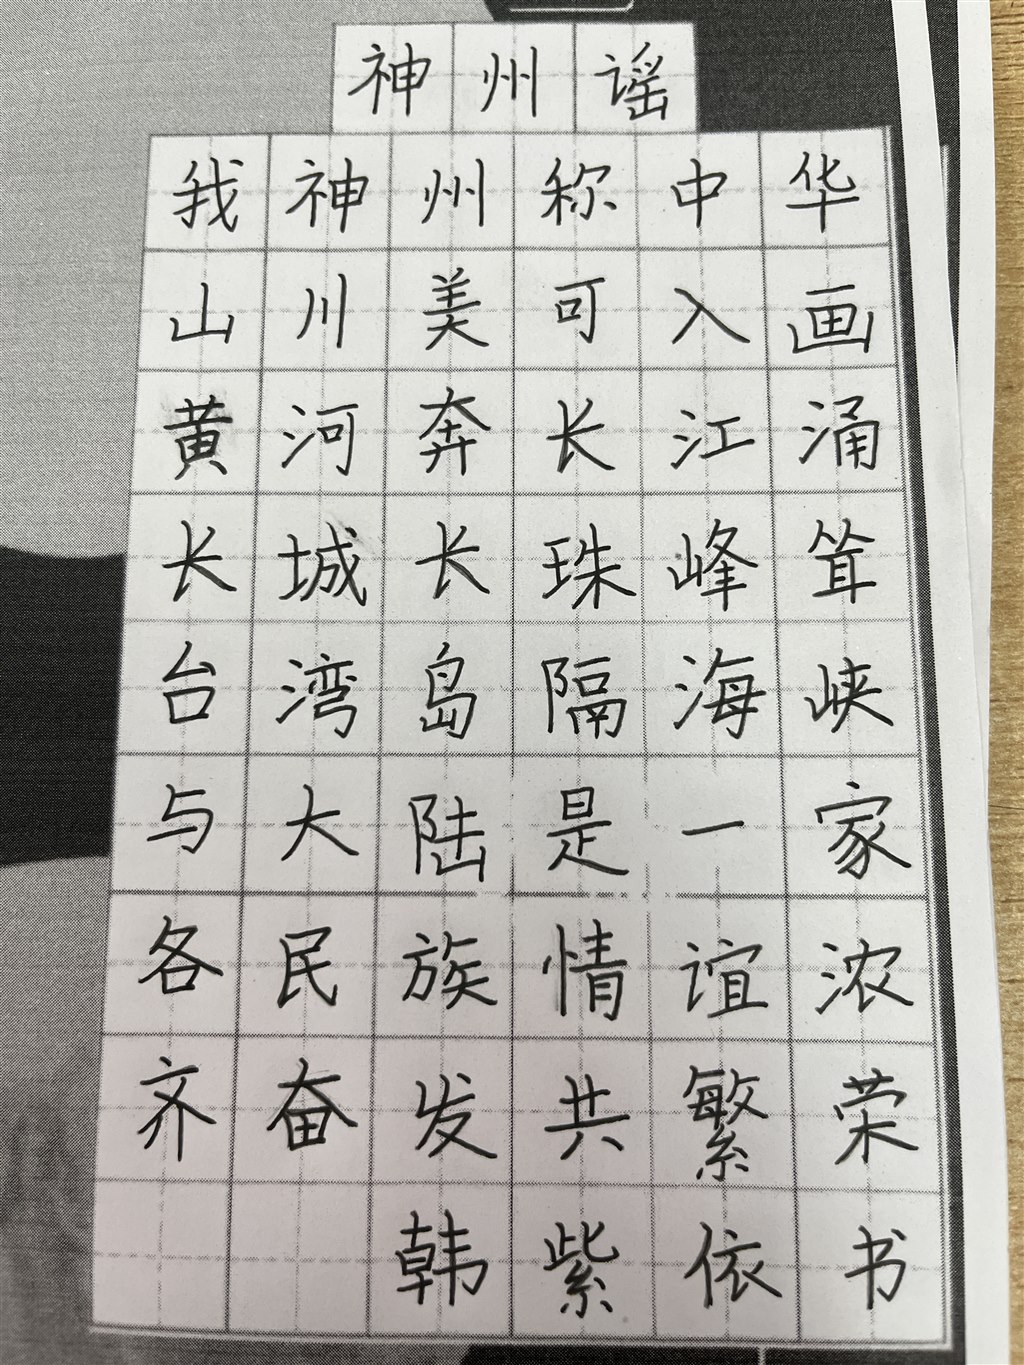 神州谣
我神州称中华
山川美可入画
黄河奔长江涌
长城长珠峰耸
台湾岛隔海峡
与大陆是一家
各民族情谊浓
齐奋发共繁荣
韩紫依书